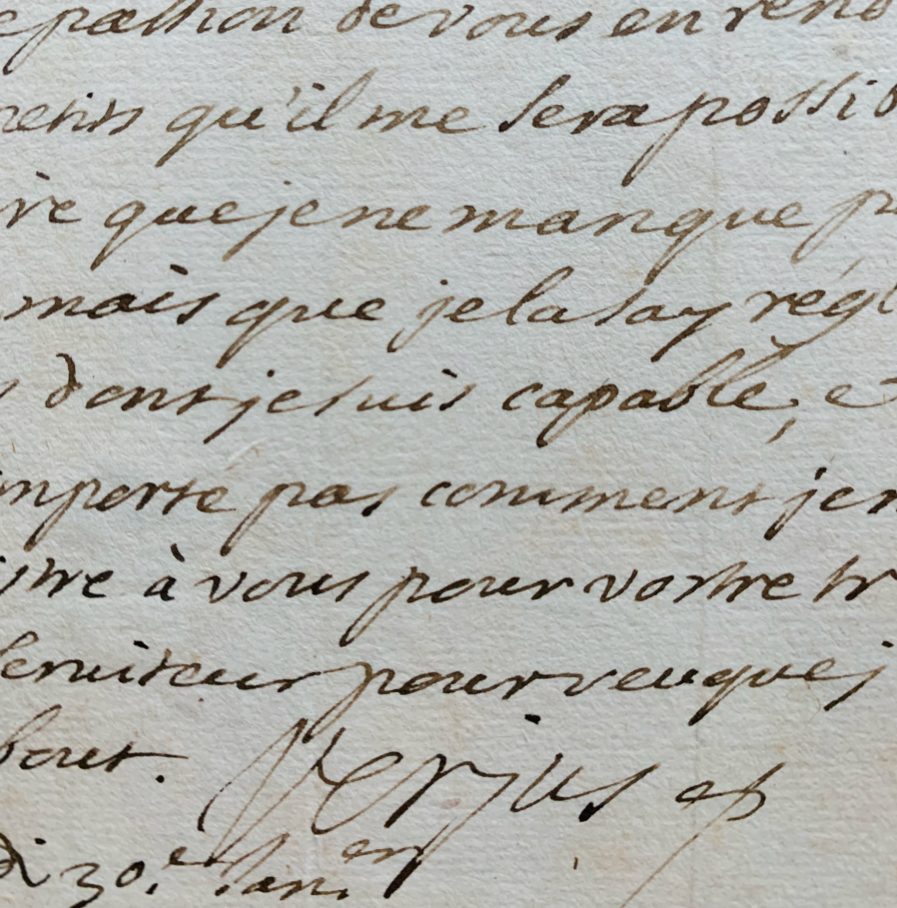 de vous en rend
qu'il me sera possib
re que je ne manque p
mais que je la say regl
dont je suis capable, e
mporte pas comment je
stre à vous pour vostre tr
seruiteur pourveu que j
bout. Verjus
di 30.e Jan.er